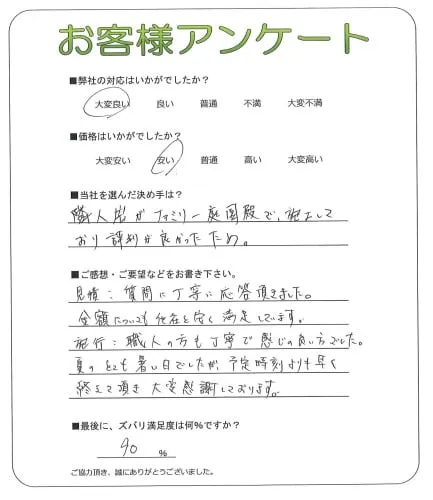 お客様アンケート
■弊社の対応はいかがでしたか？
大変良い 良い 普通 不満 大変不満
■価格はいかがでしたか？
大変安い 安い 普通 高い 大変高い
■当社を選んだ決め手は？
隣人宅がファミリー庭園殿で、施工して
おり評判が良かったため。
■ご感想・ご要望などをお書き下さい。
見積：質問に丁寧に応答頂きました。
金額についても他社と安く満足しています。
施行：職人の方も丁寧で感じの良い方でした。
夏のとても暑い日でしたが、予定時刻よりも早く
終えて頂き大変感謝しております。
■最後に、ズバリ満足度は何％ですか？
90 ％
ご協力頂き、誠にありがとうございました。